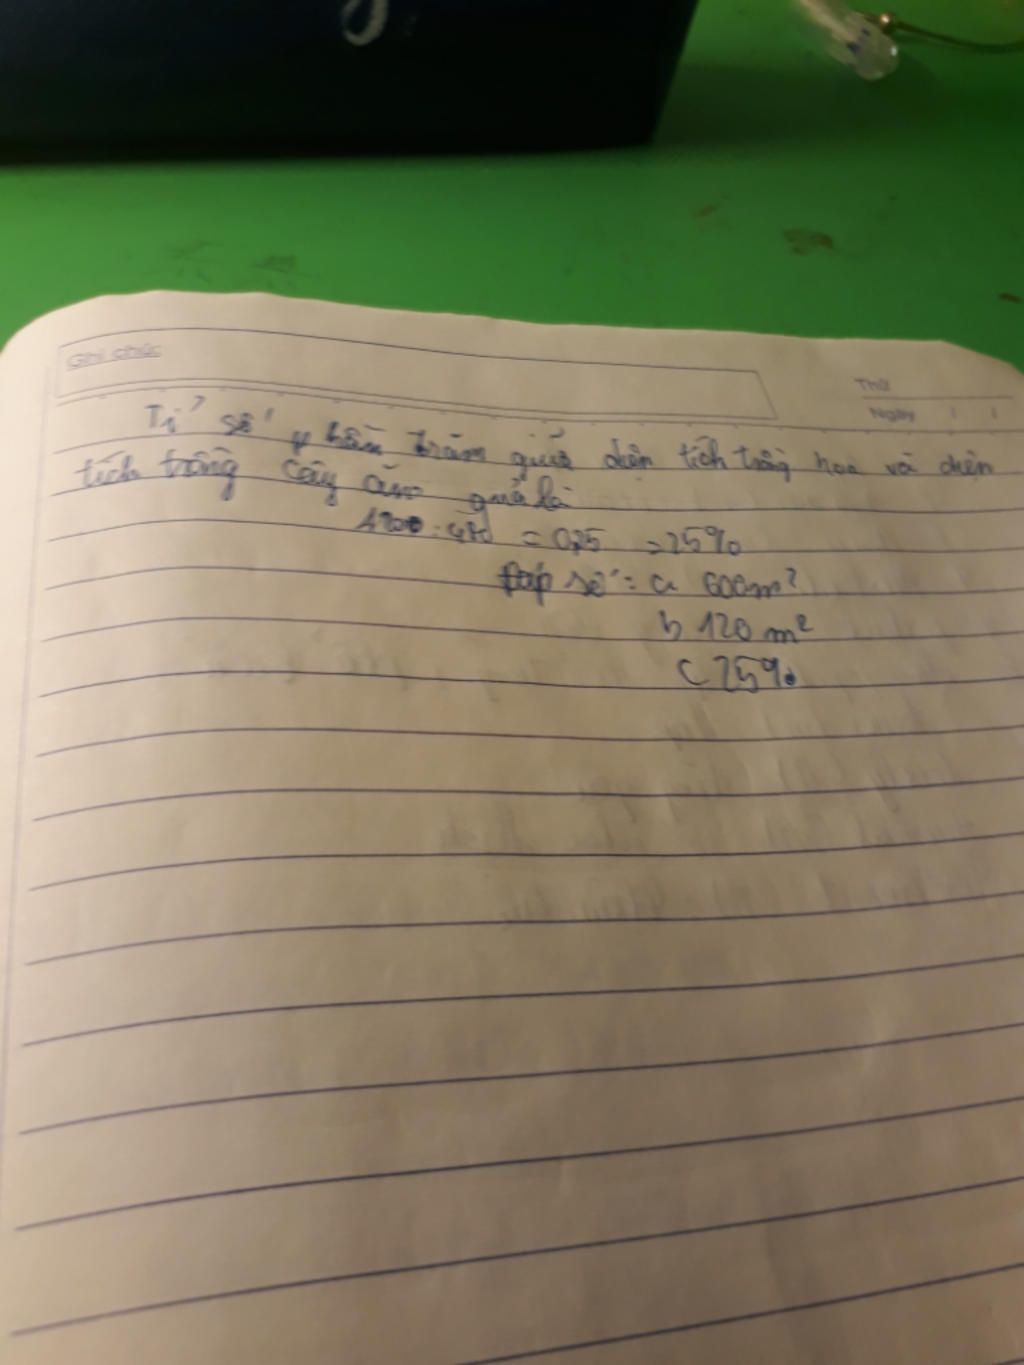 Ghi chú:
Thứ
Ngày / /
Tỉ số phần trăm giữa diện tích trồng hoa và diện
tích trồng cây ăn quả là
: 480 = 0,25 = 25%
Đáp số: a 600m²
b 120 m²
c 25%